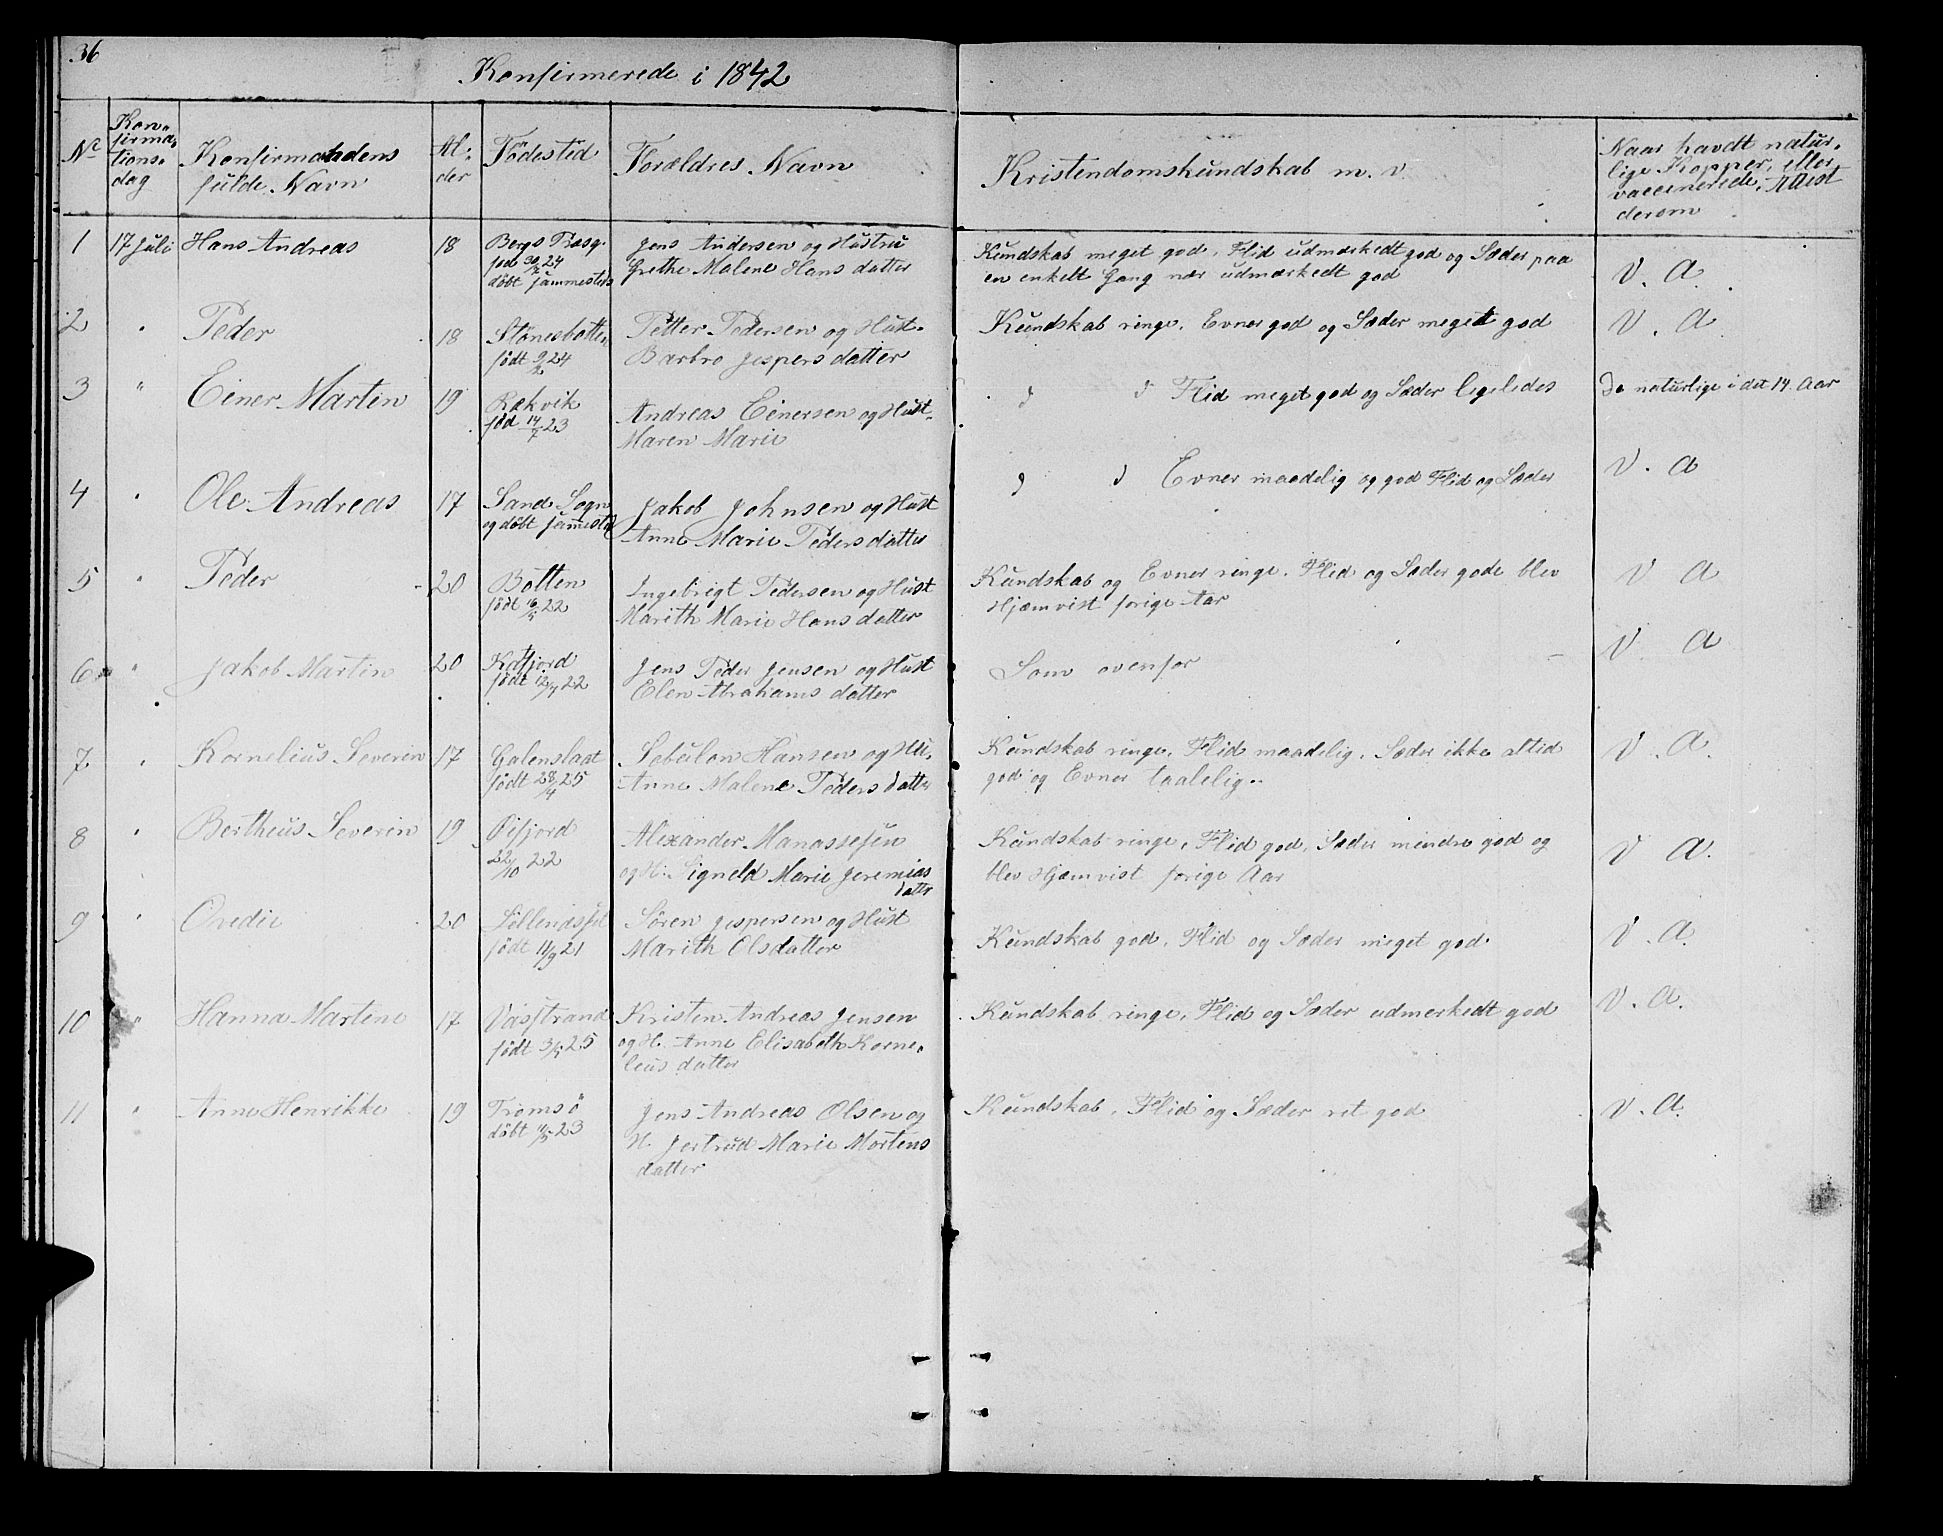 36
Konfirmerede i 1842
No
Kon-
firma-
tions-
dag
Konfirmandens
fulde Navn
Al-
der
Födested
Forældres Navn
Kristendomskundskab m. v.
Naar havdt natur-
lige Kopper, eller
vaccinerede, Attest
derom
1 17 Juli Hans Andreas 18
Bergs Præsg.
född 30/2 24
döbt sammesteds
Jens Andersen og Hustru
Grethe Malene Hansdatter
Kundskab meget god, Flid udmærkedt god og Sæder paa
en enkelt Gang nær udmærkedt god
V. A.
2 " Peder 18
Stönesbotten
födt 9/2 24
Petter Pedersen og Hust.
Barbro Jespersdatter
Kundskab ringe, Evner god og Sæder meget god
V. A
3 " Einer Martin 19
Rækvik
föd 14/7 23
Andreas Einersen og Hust.
Maren Marie
d d Flid meget god og Sæder ligeledes
De naturlige i det 14. Aar
4 " Ole Andreas 17
Sand Sogn
og döbt sammested
Jakob Johnsen og Hust
Anne Marie Pedersdatter
d d Evner maadelig og god Flid og Sæder
V. A
5 " Peder 20
Botten
födt 16/5 22
Ingebrigt Pedersen og Hust
Marith Marie Hansdatter
Kundskab og Evner ringe. Flid og Sæder gode blev
Hjemvist forige Aar
V A
6 " Jakob Martin 20
Kafjord
födt 12/7 22
Jens Peder Jensen og Hust
Elen Abrahamsdatter
Som ovenfor
V A
7 " Kornelius Severin 17
födt 28/4 25
Sebulon Hansen og Hu.
Anne Malene Pedersdatter
Kundskab ringe, Flid maadelig, Sæder ikke altid
god og Evner taalelig.
V. A.
8 " Bertheus Severin 19
Öifjord
22/10 22
Alexander Manassesen
og H. Signeld Marie Jeremias
datter
Kundskab ringe, Flid god, Sæder mindre god og
blev Hjemvist forige Aar
V A.
9 " Ovedie 20
födt 11/9 21
Sören Jespersen og Hust
Marith Olsdatter
Kundskab god, Flid og Sæder meget god.
V. A.
10 " Hanna Martine 17
Vasstrand
födt 3/5 25
Kristen Andreas Jensen
og H. Anne Elisabeth Korne-
liusdatter
Kundskab ringe, Flid og Sæder udmerkedt god
V. A.
11 " Anne Henrikke 19
Tromsö
döbt 11/5 23
Jens Andreas Olsen og
H. Jertrud Marie Mortens
datter
Kundskab, Flid og Sæder ret god
V. A.